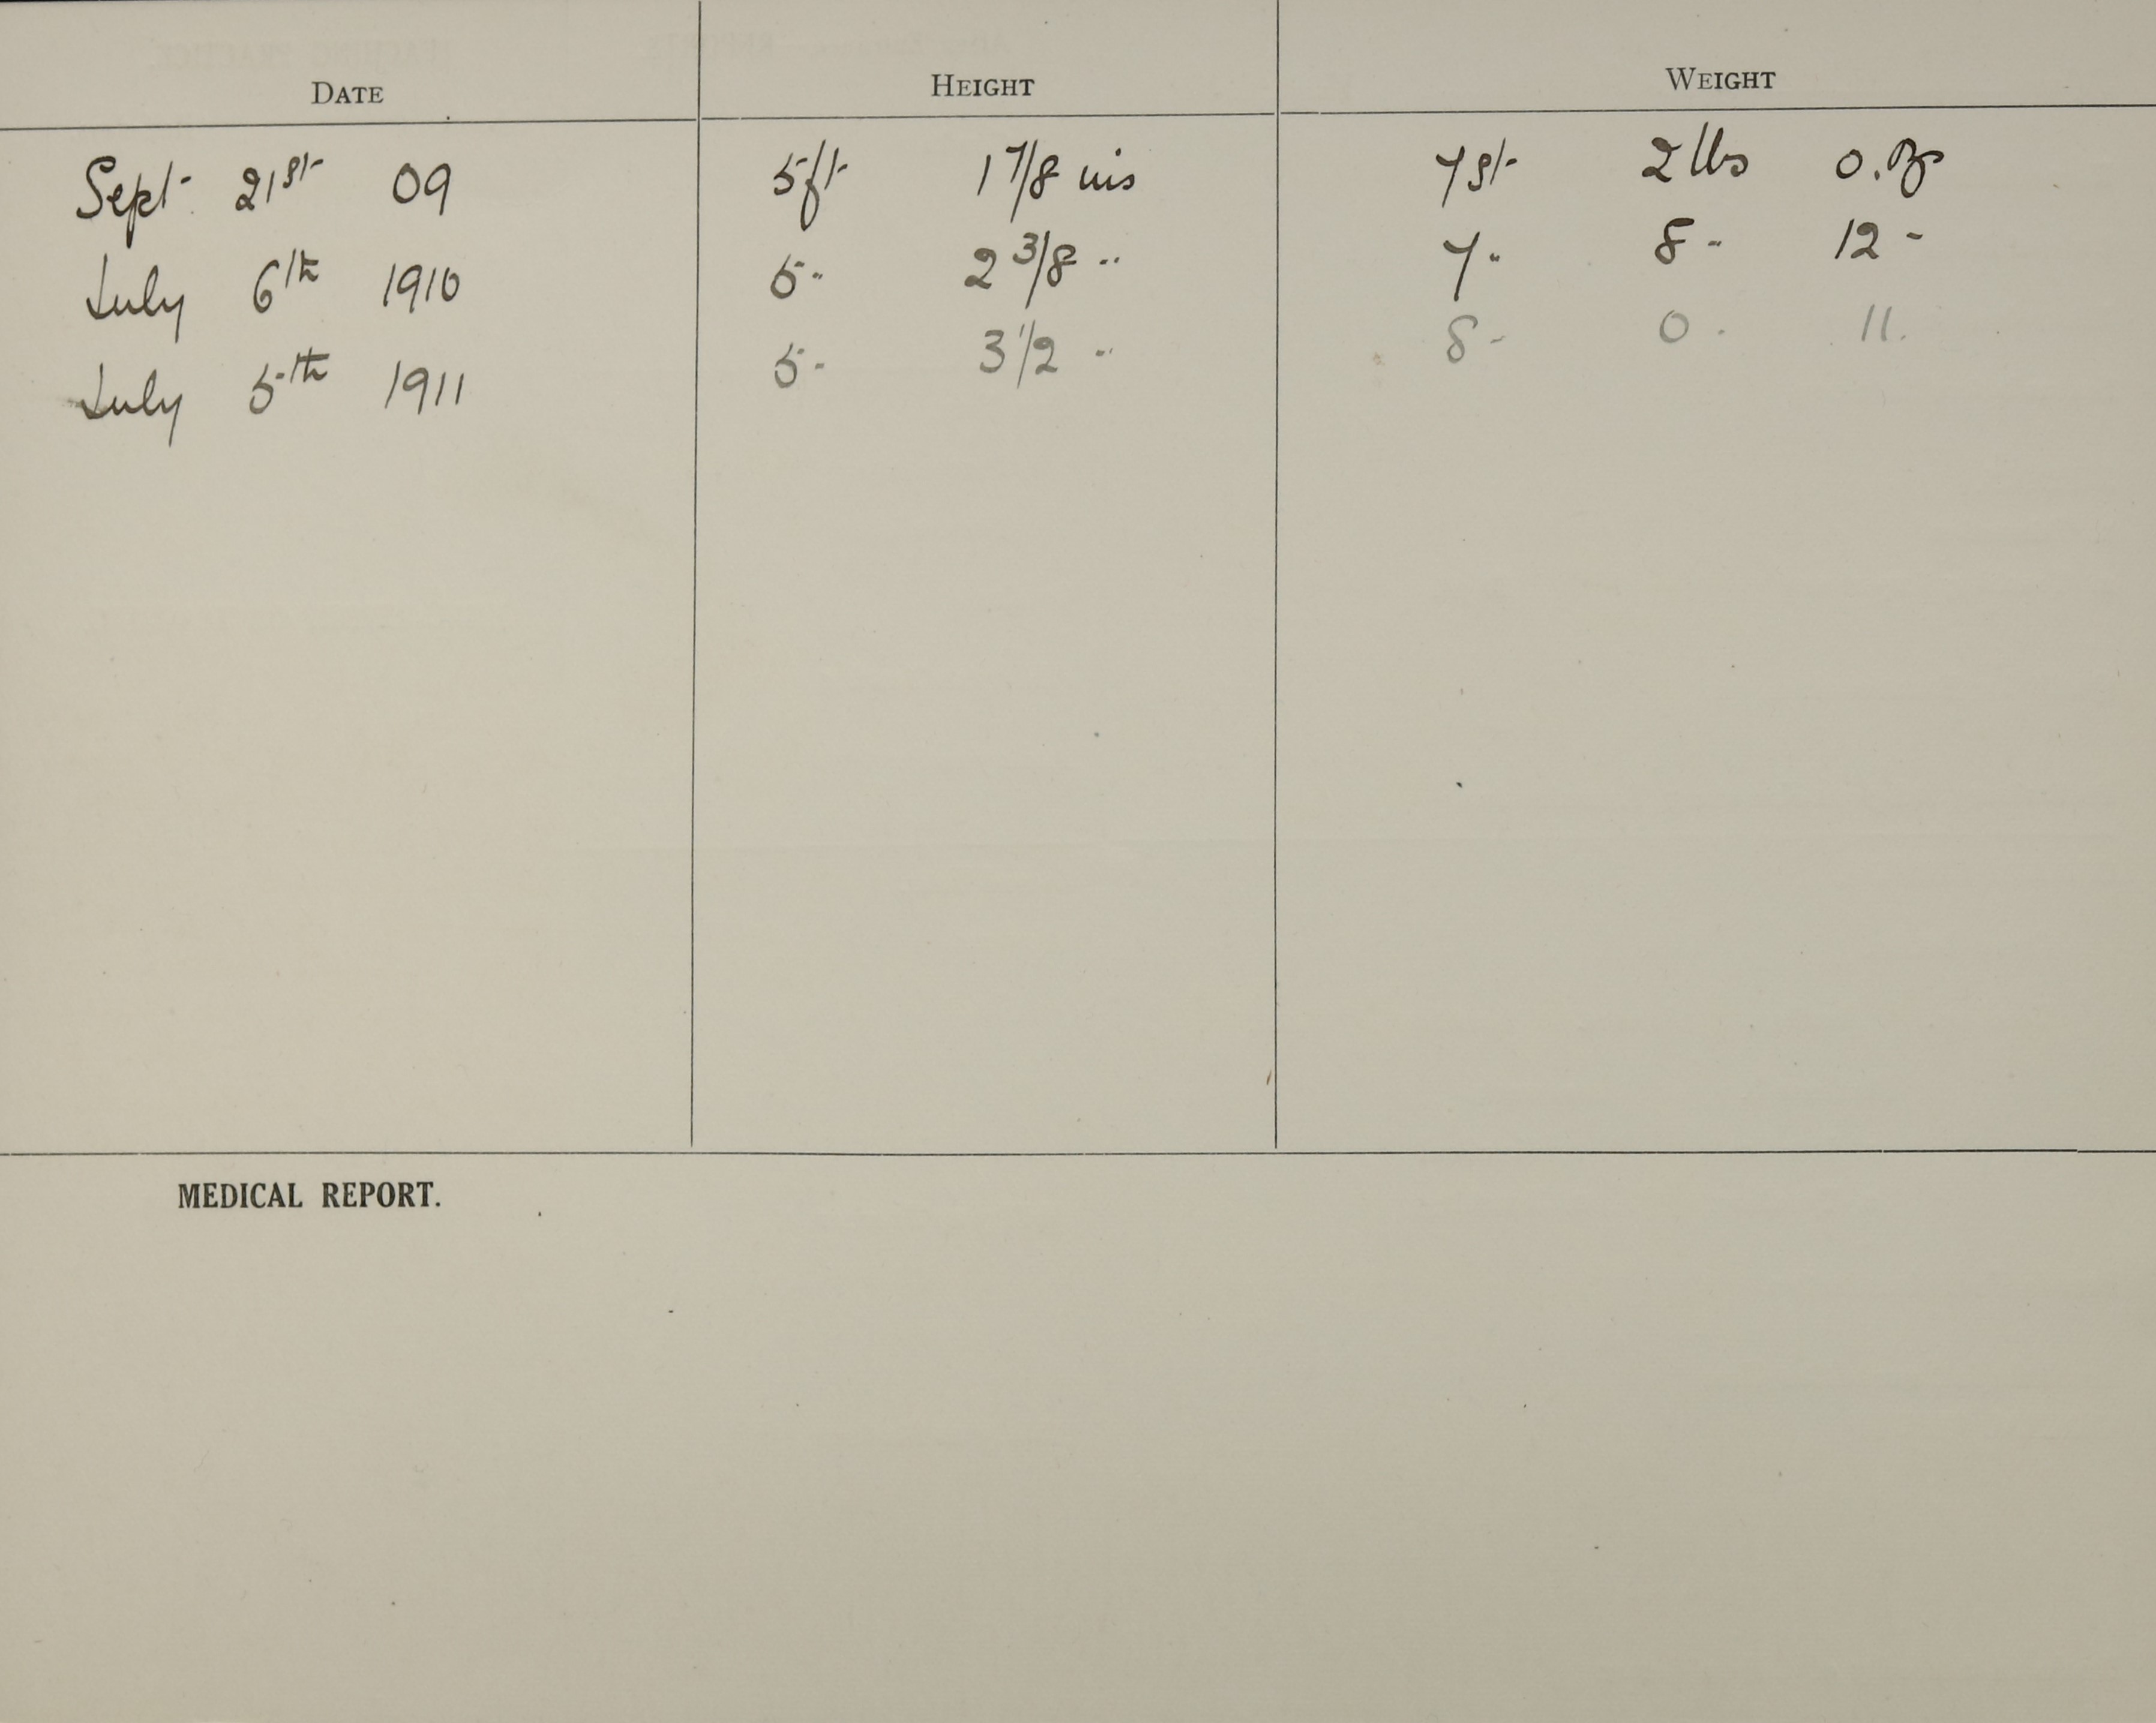 DATE HEIGHT WEIGHT
Sept. 21st 09 5ft 1 7/8 ins 7st 2 lbs 0.oz
July 6th 1910 5 " 2 3/8 " 7 " 8 " 12 "
July 5th 1911 5 " 3 1/2 " 8 - 0 . 11.
MEDICAL REPORT.